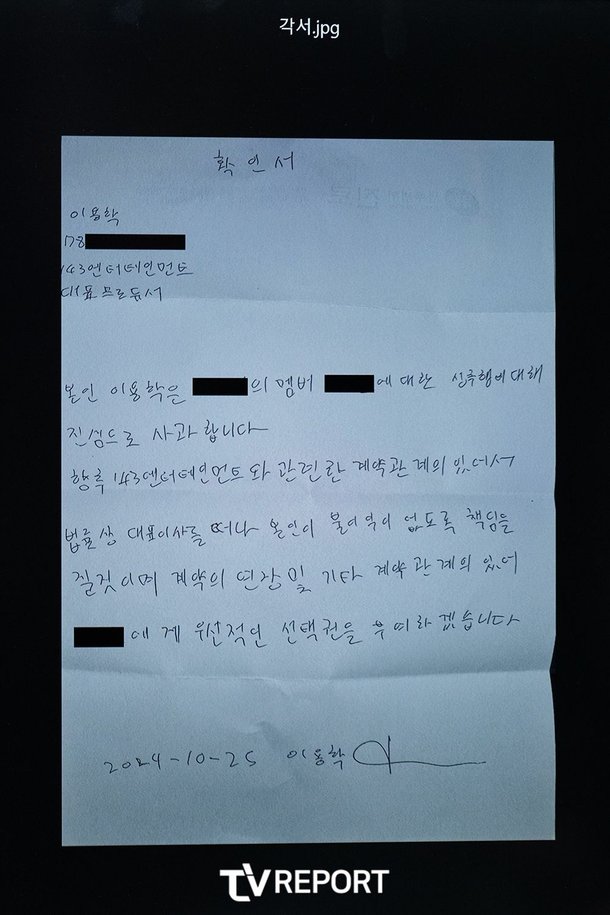 각서.jpg
확인서
이용학
78
143엔터테인먼트
대표프로듀서
본인 이용학은 의 멤버 에 대한 성추행에대해
진심으로 사과합니다
향후 143엔터테인먼트와 관련한 계약관계의 있어서
법률상 대표이사를 떠나 본인이 불이익이 없도록 책임을
질것이며 계약의 연장 및 기타 계약관계의 있어
에게 우선적인 선택권을 부여하겠습니다
2024-10-25 이용학
TVREPORT